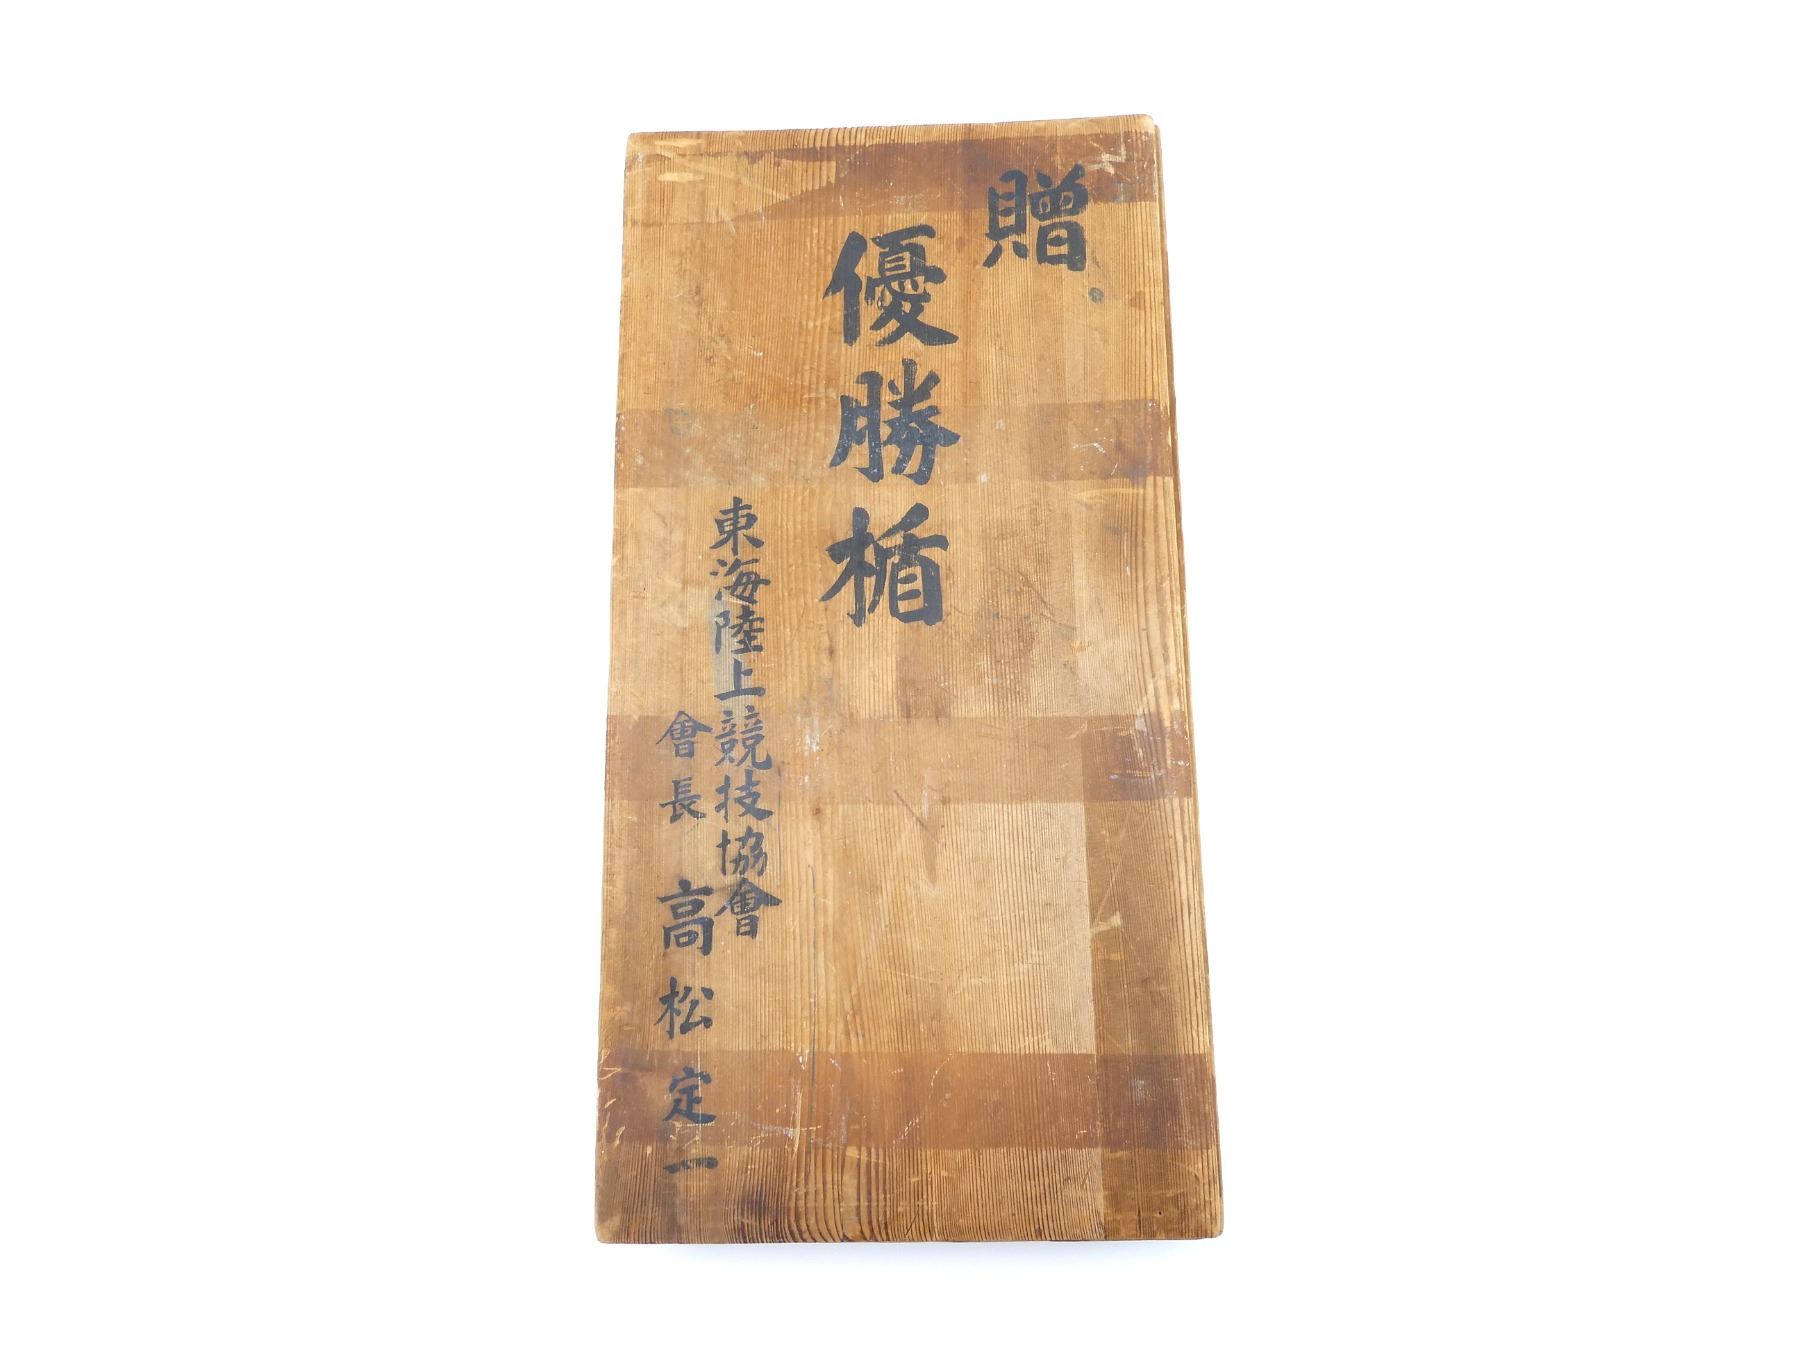 贈
優勝楯
東海陸上競技協會
會長 高松定一